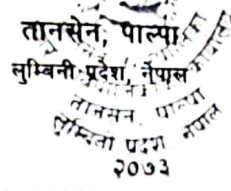 तानसेन, पाल्पा
लुम्बिनी प्रदेश, नेपाल
तानसेन पाल्पा
लुम्बिनी प्रदेश नेपाल
२०७३